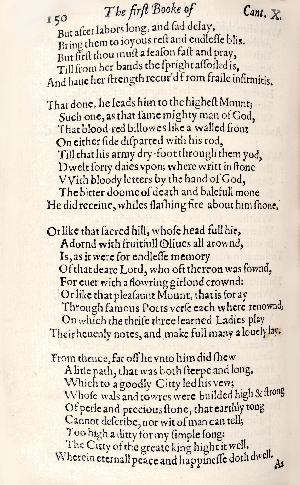 150 The first Booke of Cant. X.
But after labors long, and sad delay,
Bring them to ioyous rest and endlesse blis.
But first thou must a season fast and pray,
Till from her bands the spright assoiled is,
And haue her strength recur'd from fraile infirmitis.
That done, he leads him to the highest Mount;
Such one, as that same mighty man of God,
That blood-red billowes like a walled front
On either side disparted with his rod,
Till that his army dry-foot through them yod,
Dwelt forty daies vpon; where writt in stone
VVith bloody letters by the hand of God,
The bitter doome of death and balefull mone
He did receiue, whiles flashing fire about him shone.
Or like that sacred hill, whose head full hie,
Adornd with fruitfull Oliues all arownd,
Is, as it were for endlesse memory
Of that deare Lord, who oft thereon was fownd,
For euer with a flowring girlond crownd:
Or like that pleasaunt Mount, that is for ay
Through famous Poets verse each where renownd,
On which the thrise three learned Ladies play
Their heuenly notes, and make full many a louely lay.
From thence, far off he vnto him did shew
A litle path, that was both steepe and long,
Which to a goodly Citty led his vew;
Whose wals and towres were builded high & strong
Of perle and precious stone, that earthly tong
Cannot describe, nor wit of man can tell;
Too high a ditty for my simple song:
The Citty of the greate king hight it well,
Wherein eternall peace and happinesse doth dwell.
As